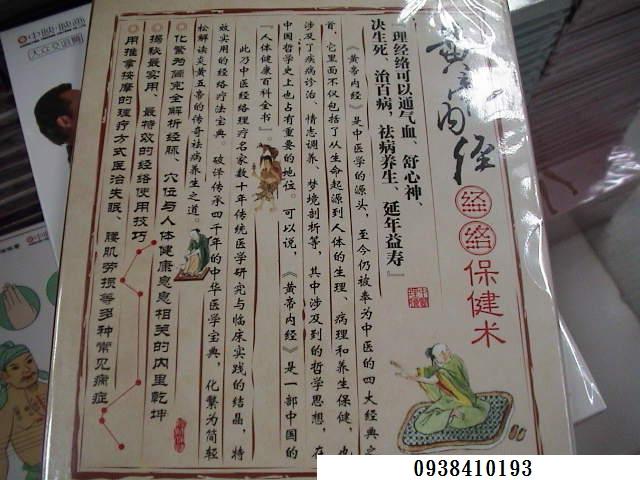 黄帝内经
经络保健术
理经络可以通气血、舒心神、
决生死、治百病,祛病养生、延年益寿』
《黄帝内经》是中医学的源头,至今仍被奉为中医的四大经典之
首,它里面不仅包括了从生命起源到人体的生理、病理和养生保健,也
涉及了疾病诊治、情志调养、梦境剖析等,其中涉及到的哲学思想,在
中国哲学史上也占有重要的地位。可以说,《黄帝内经》是一部中国的
『人体健康百科全书』。
此乃中医经络理疗名家数十年传统医学研究与临床实践的结晶,特
效实用的经络疗法宝典。破译传承四千年的中华医学宝典,化繁为简轻
松解读炎黄五帝的传奇祛病养生之道。
化繁为简完全解析经脉、穴位与人体健康息息相关的内里乾坤
揭秘最实用、最特效的经络使用技巧
用推拿按摩的理疗方式医治失眠、腰肌劳损等多种常见病症
中映·映画
0938410193